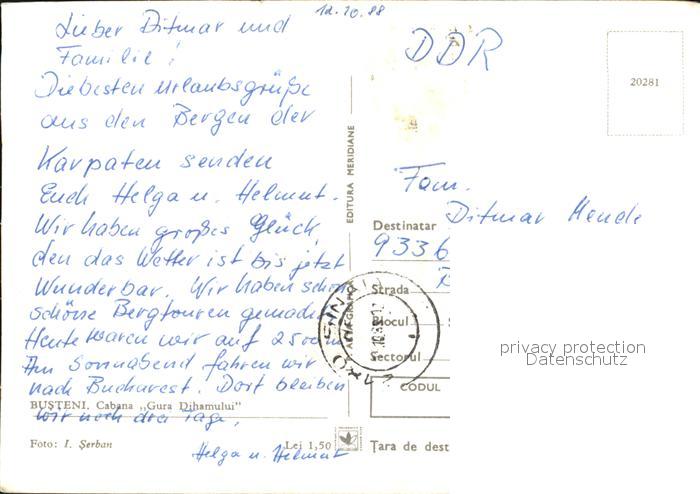 12.10.88
Lieber Ditmar und
Familie!
Die besten Urlaubsgrüße
aus den Bergen der
Karpaten senden
Euch Helga u. Helmut.
Wir haben großes Glück,
den das Wetter ist bis jetzt
Wunderbar. Wir haben schon
schöne Bergtouren gemacht
Heute waren wir auf 2500m
Am Sonnabend fahren wir
nach Bucharest. Dort bleiben
BUȘTENI. Cabana „Gura Dihamului"
wir noch drei Tage.
Foto: I. Șerban
Lei 1,50
Helga u. Helmut
EDITURA MERIDIANE
DDR
20281
Fam.
Ditmar Mende
Destinatar
9336
Strada
Blocul
Sectorul
CODUL
Țara de dest
privacy protection
Datenschutz